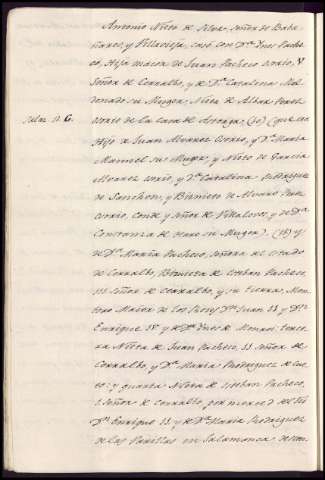 Antonio Nieto de Silva, señor de Baba
ñares, y Villavieja, casó con Dª Ynes Pache
co, Hija maior de Juan Pacheco Osorio, V
Señor de Cerralbo, y de Dª Catalina Mal
donado su Muger, Nieta de Alvar Perez
Osorio de la casa de Astorga, (10) (que era
Hijo de Juan Alvarez Osorio, y Dª Maria
Manuel su Muger, y Nieto de Garcia
Alvarez Osorio, y Dª Catalina Rodriguez
de Sanchon, y Bisnieto de Alvaro Perez
Osorio, conde y señor de Villalovos, y de Dª
Constanza de Haro su Muger), (18) y
de Dª Maria Pacheco, señora del estado
de Cerralbo, Bisnieta de Esteban Pacheco,
III Señor de Cerralbo, y su tierra, Mon
tero Maior de los Reyes Dⁿ Juan II y Dⁿ
Enrique IV y de Dª Ynes de Monroi: terce
ra Nieta de Juan Pacheco, II señor de
Cerralbo, y Dª Maria Rodriguez
y quarta Nieta de Esteban Pacheco,
I Señor de Cerralbo, por merced del Rei
Dⁿ Enrique II y de Dª Maria Rodriguez
de las Varillas en Salamanca